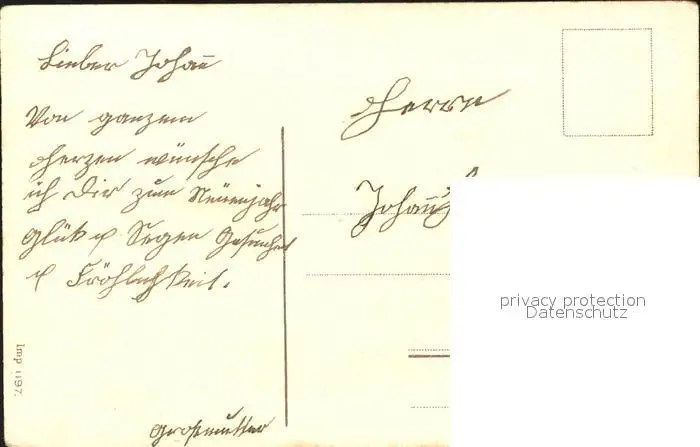 Lieber Johann
Von ganzem
Herzen wünsche
ich Dir zum Neuenjahr
Glück u Segen Gesundheit
u Fröhlichkeit.
Großmutter
Herrn
Johann
Imp 1197.
privacy protection
Datenschutz